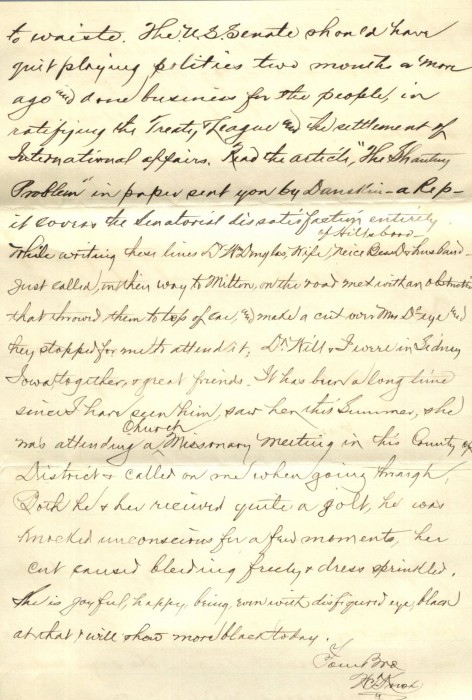 to waiste. The U.S. Senate should have
quit playing politics two months & more
ago and done business for the people, in
ratifying the Treaty, League and the settlement of
International affairs. Read the article, "The Shantung
Problem" in paper sent you by Danskin - a Rep -
it covers the Senatorial dissatisfaction entirely
of Hillsboro
While writing these lines Dr W Douglas, Wife, Neice & husband -
just called, on their way to Milton, on the road met with an obstruction
that throwed them to top of car, and make a cut over Mrs Ds eye and
they stopped for me to attend it; Dr. Will & I were in Sidney
Iowa together, & great friends. It has been a long time
since I have seen him, saw her this Summer, she
Church
was attending a Missonary Meeting in his County or
District & called on me when going through,
Both he & her recived quite a jolt, he was
knocked unconscious for a few moments, her
cut caused bleeding freely & dress sprinkled.
She is joyful, happy, being, even with disfigured eye, black
at that & will show more black today.
Your Bro